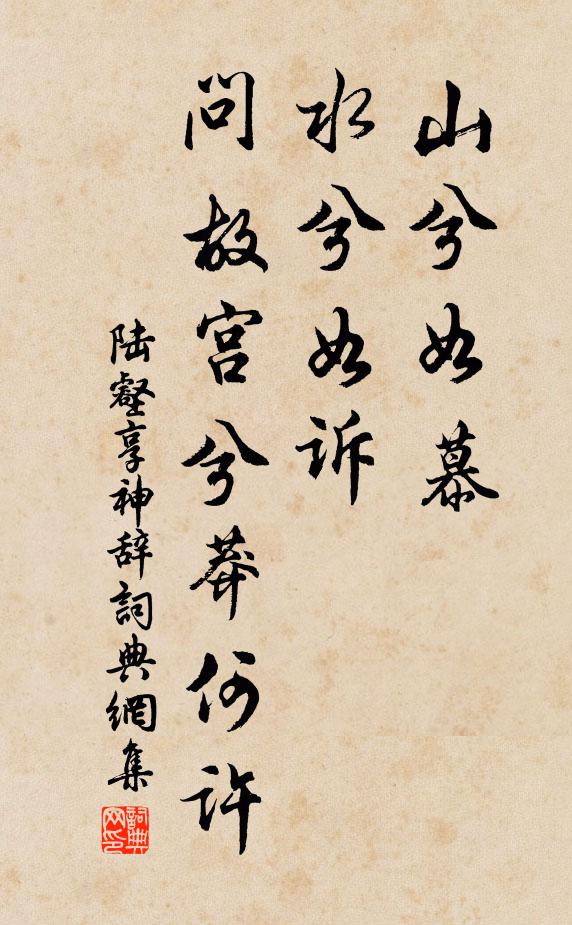 山兮如慕
水兮如诉
问故宫兮莽何许
陆壑享神辞詞典網集
詞典网印